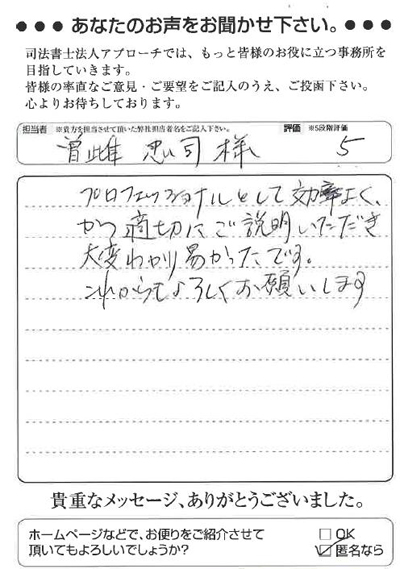 ●●●あなたのお声をお聞かせ下さい。●●●
司法書士法人アプローチでは、もっと皆様のお役に立つ事務所を
目指していきます。
皆様の率直なご意見・ご要望をご記入のうえ、ご投函下さい。
心よりお待ちしております。
担当者 ※貴方を担当させて頂いた弊社担当者名をご記入下さい。 評価 ※5段階評価
忠司様 5
プロフェッショナルとして効率よく、
かつ適切にご説明いただき
大変わかり易かったです。
これからもよろしくお願いします
貴重なメッセージ、ありがとうございました。
ホームページなどで、お便りをご紹介させて
頂いてもよろしいでしょうか?
□ OK
☑ 匿名なら